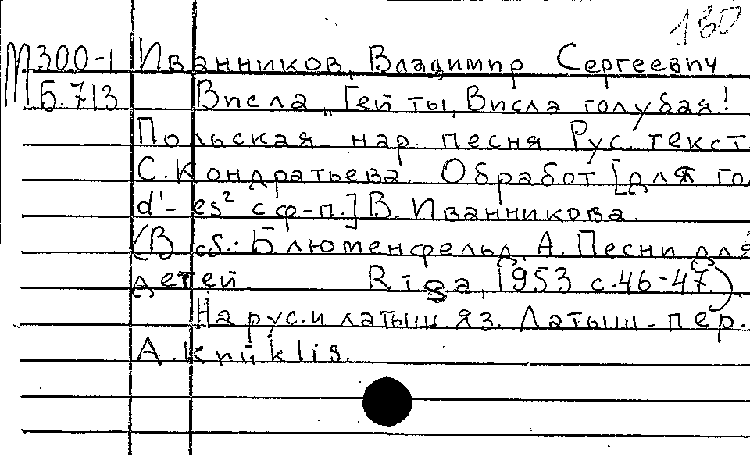 130
М300-1 Иванников, Владимир Сергеевич
Б.713 Висла „Гей ты, Висла голубая!
Польская нар. песня Рус. текст
С. Кондратьева. Обработ [для го
d'-es² с ф-п.] В. Иванникова.
(В сб.: Блюменфельд, А. Песни для
детей Rīga, 1953 с.46-47)
На рус. и латыш яз. Латыш. пер.
A. Knūklis.